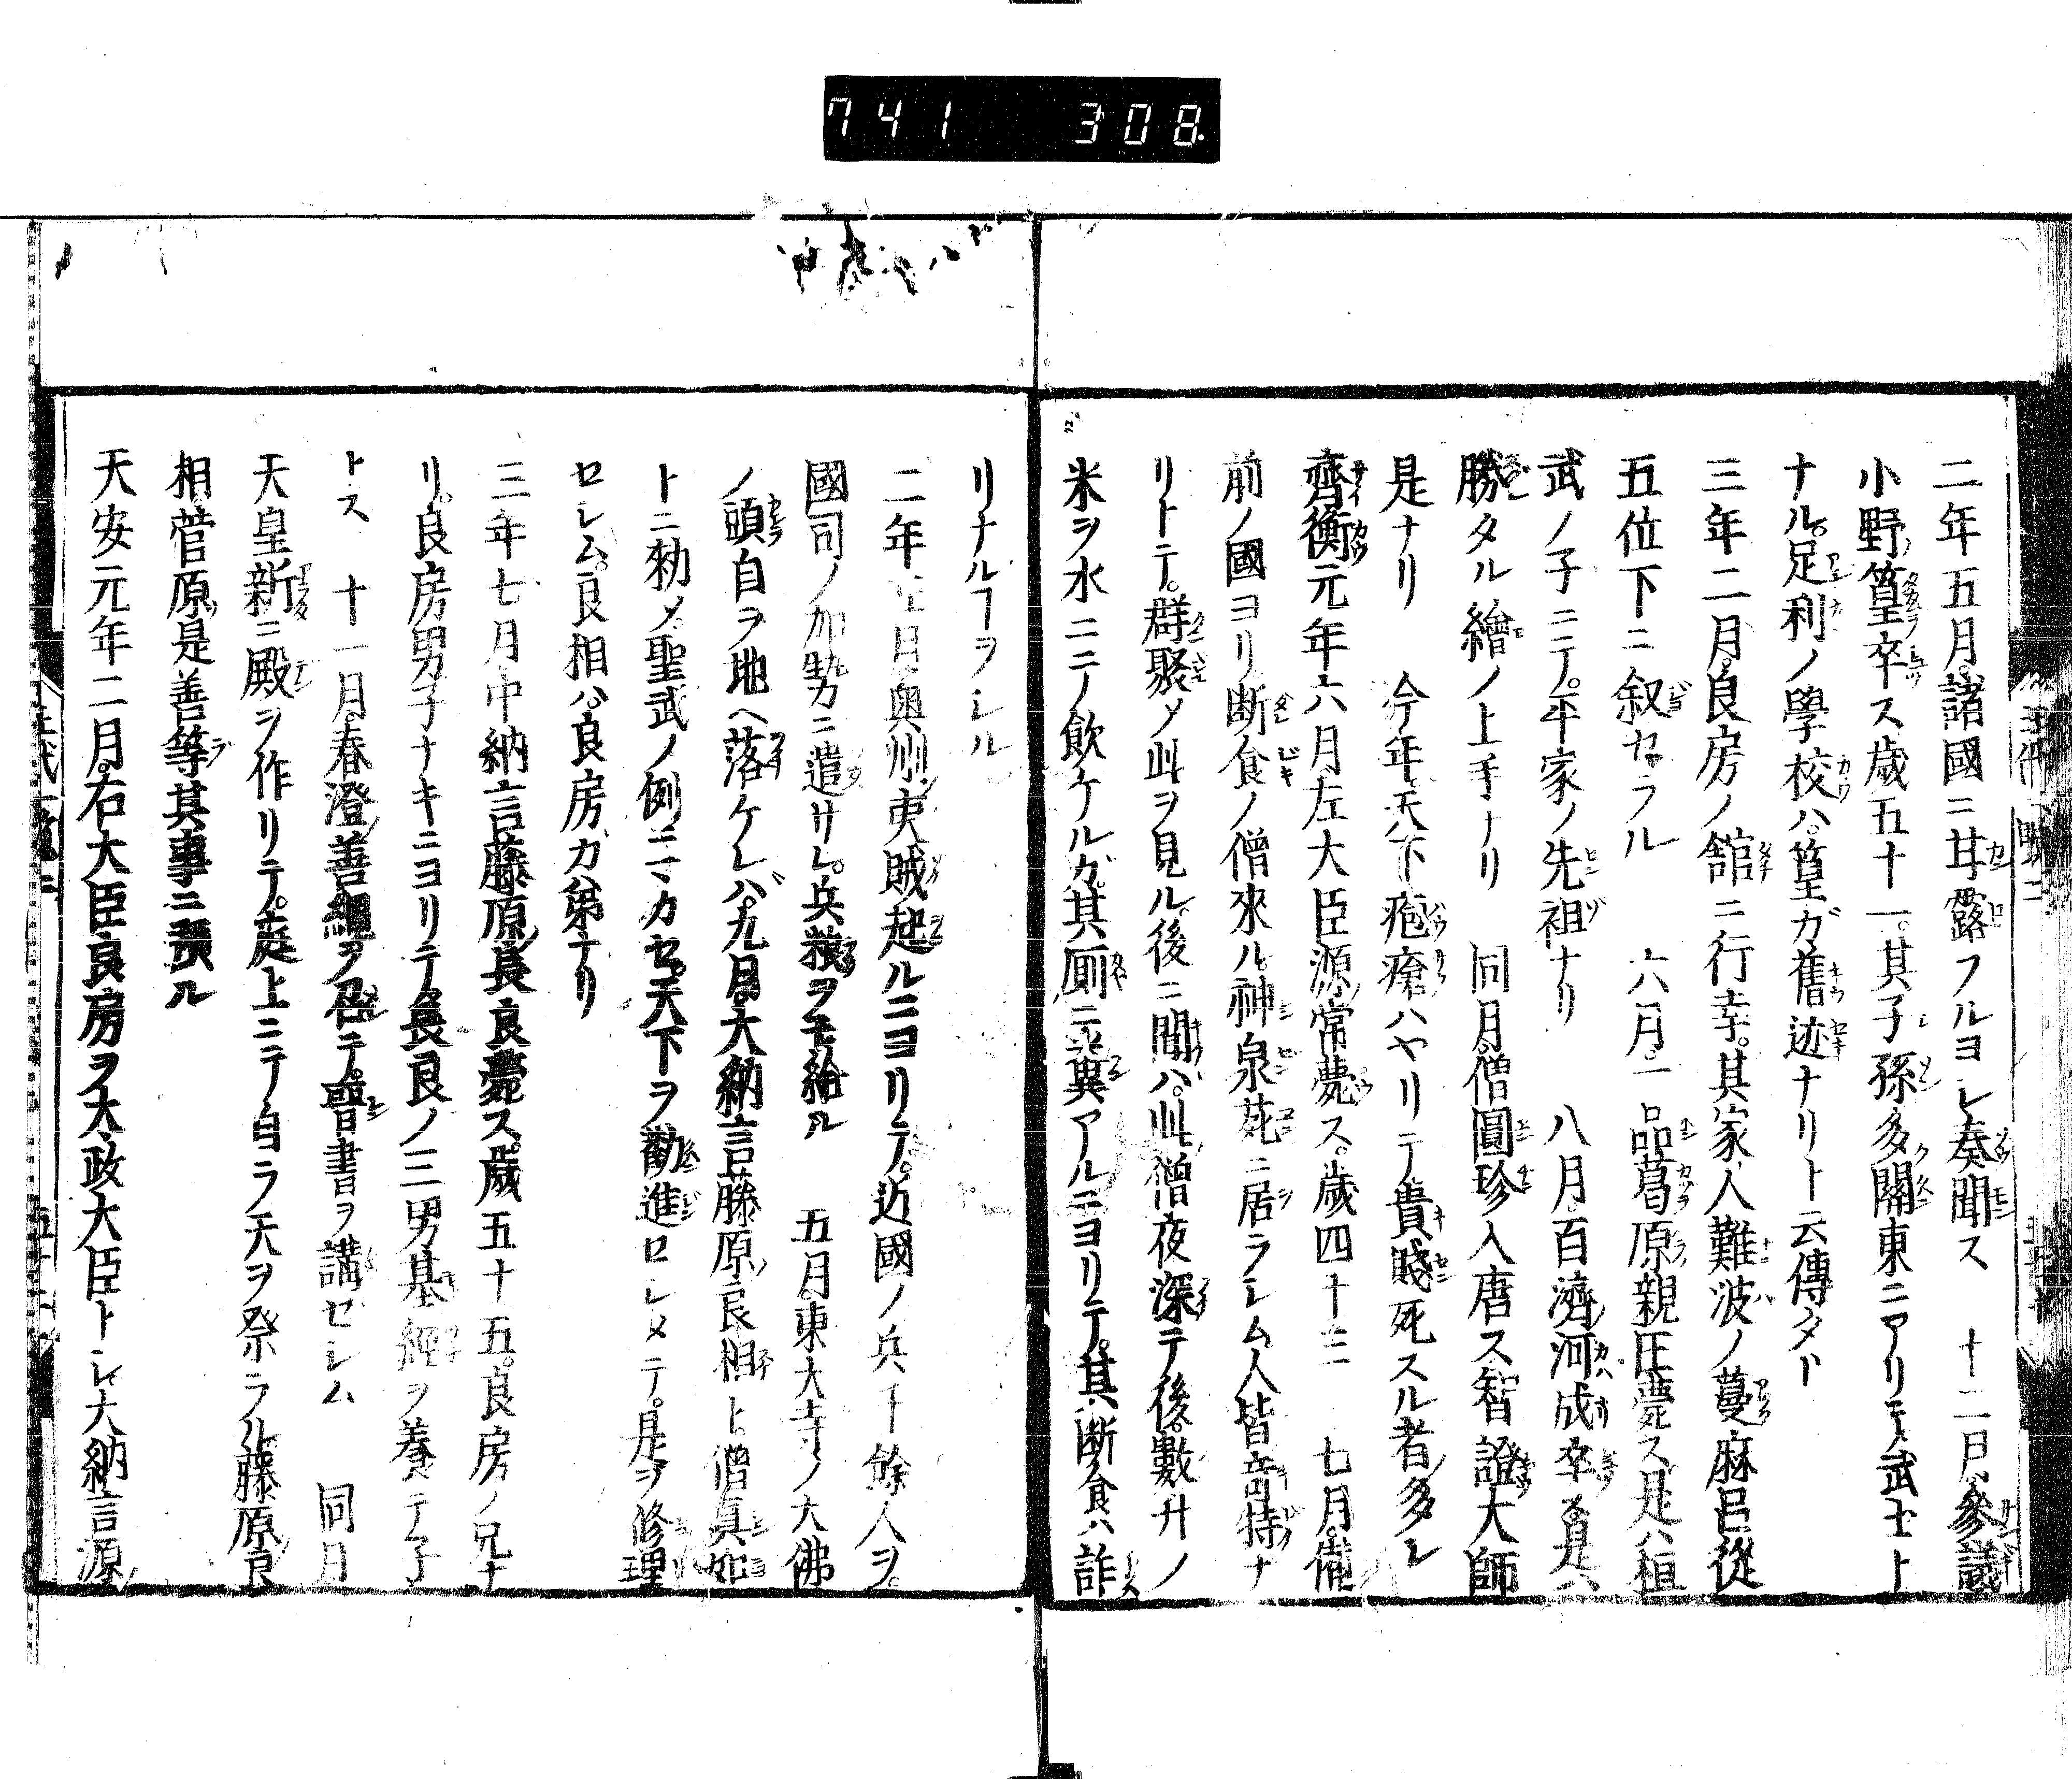 741 308
二年五月諸國ニ甘露フルヨシ奏聞ス 十二月參議
小野篁卒ス歳五十一。其子孫多關東ニアリテ武士ト
ナル。足利ノ學校ハ。篁ガ舊迹ナリト云傳タリ
三年二月。良房ノ舘ニ行幸。其家人難波ノ蔓麻呂從
五位下ニ叙セラル 六月。一品葛原親王薨ス是ハ桓
武ノ子ニテ。平家ノ先祖ナリ 八月百濟河成卒ス是ハ
勝タル繪ノ上手ナリ 同月。僧圓珍入唐ス智證大師
是ナリ 今年天下疱瘡ハヤリテ貴賤死スル者多シ
齊衡元年六月左大臣源常薨ス。歳四十三 七月。備
前ノ國ヨリ断食ノ僧來ル。神泉苑ニ居ラシム人皆奇特ナ
リトテ。群聚メ此ヲ見ル。後ニ聞ハ。此僧夜深テ後。數升ノ
米ヲ水ニテノ飲ケルガ。其厠ニ糞アルニヨリテ。其断食ハ詐
リナルヿヲシル
二年正月奥州ノ夷賊起ルニヨリテ。近國ノ兵千餘人ヲ。
國司ノ加勢ニ遣サレ。兵粮ヲモ給ル 五月東大寺ノ大佛
ノ頭自ラ地ヘ落ケレバ。九月。大納言藤原良相ト。僧真如
トニ勅メ。聖武ノ例ニマカセ。天下ヲ勸進セシメテ。是ヲ修理
セシム。良相ハ。良房ガ弟ナリ
三年七月中納言藤原長良薨ス。歳五十五。良房ノ兄ナ
リ。良房男子ナキニヨリテ長良ノ三男基經ヲ養テ子
トス 十一月。春澄善繩ヲ召テ。晋書ヲ講セシム 同月
天皇新ニ殿ヲ作リテ。庭上ニテ自ラ天ヲ祭ラル藤原良
相菅原是善等其事ニ預ル
天安元年二月。右大臣良房ヲ太政大臣トシ大納言源